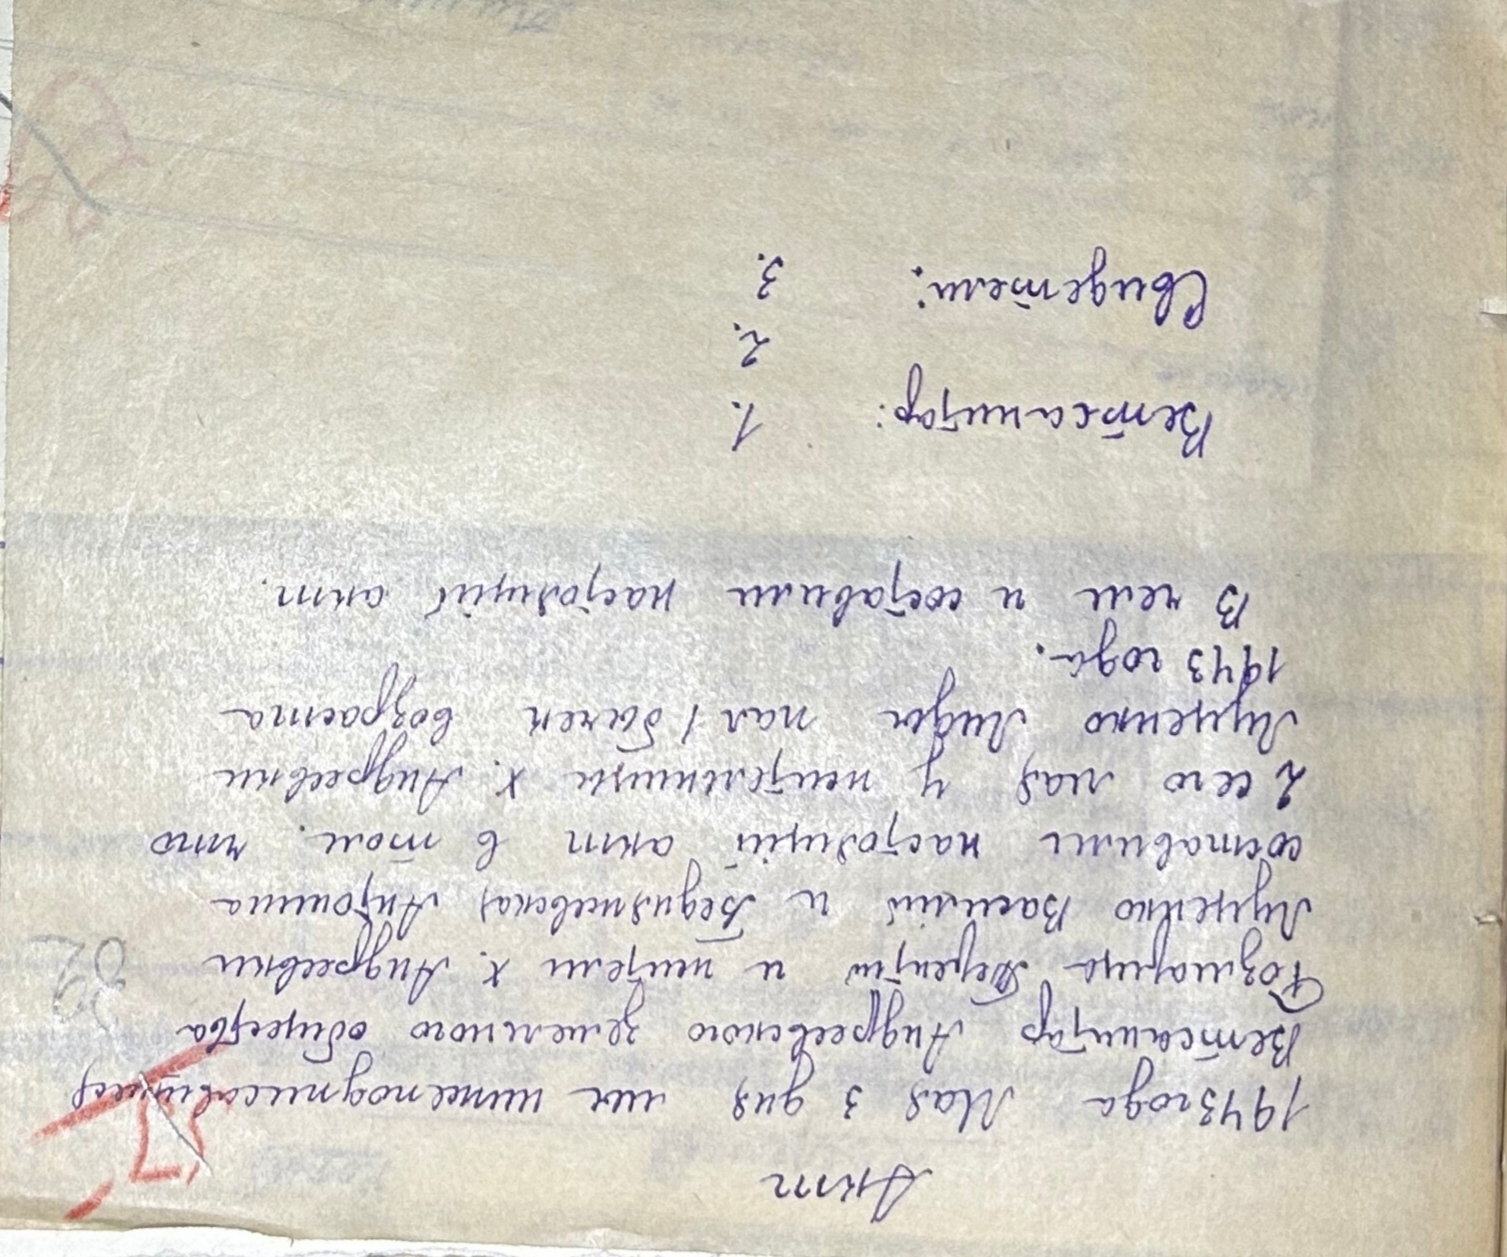 Акт
1943 года Мая 3 дня мы нижеподписавшиеся
Ветсанитар Андреевского земельного общества
Терентий и жители х. Андреевки
Луценко Василий и Антонина
составили настоящий акт в том. что
2 сего мая у жительницы х. Андреевки
Луценко Лиды пал 1 бычек возраста
1943 года.
В чем и составили настоящий акт.
Ветсанитар: 1.
2.
Свидетели: 3.